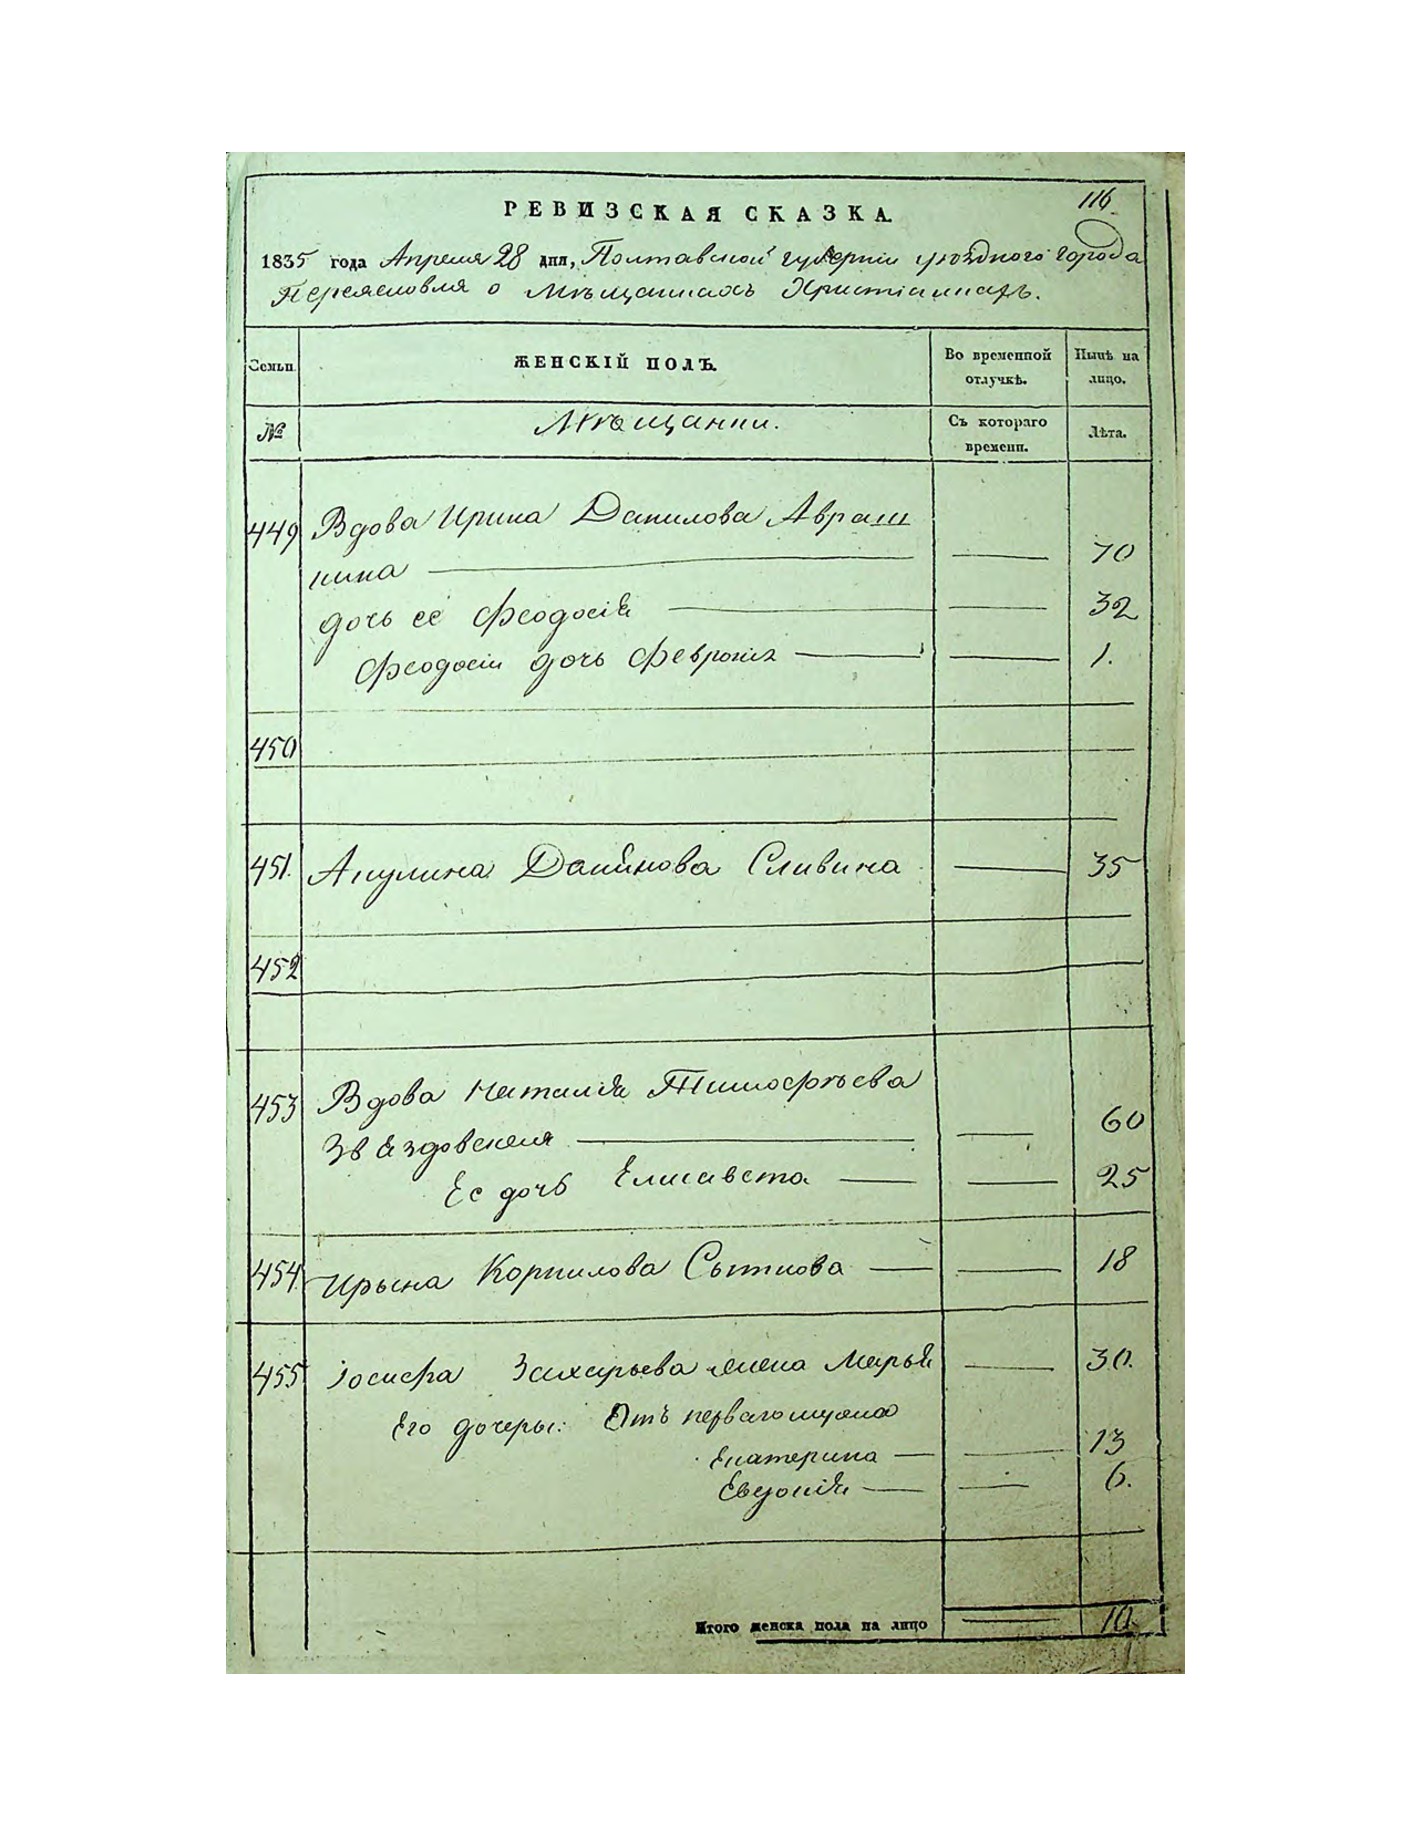 116
РЕВИЗСКАЯ СКАЗКА.
1835 года Апреля 28 дня, Полтавской губерніи уѣзднаго города
Переяславля о Мѣщанахъ Христіанахъ.
Семьи ЖЕНСКІЙ ПОЛЪ. Во временной отлучкѣ. Нынѣ на лицо.
№ Мѣщанки. Съ котораго времени. Лѣта.
449 Вдова Ирина Данилова Авраш
нина — — 70
дочь ее Феодосія — — 32
Феодосіи дочь Февронія — — 1.
450
451. Акулина Данилова Сливина — 35
452
453 Вдова Наталія Тимофѣева
Звяздовская — — 60
Ее дочь Елисавета — — 25
454. Ирына Корнилова Сытникова — — 18
455 Іосифа Захарьева жена Марья — 30.
Его дочеры: Отъ первой жены
Екатерина — — 13
Евдокія — — 6.
Итого женска пола на лицо — 10.